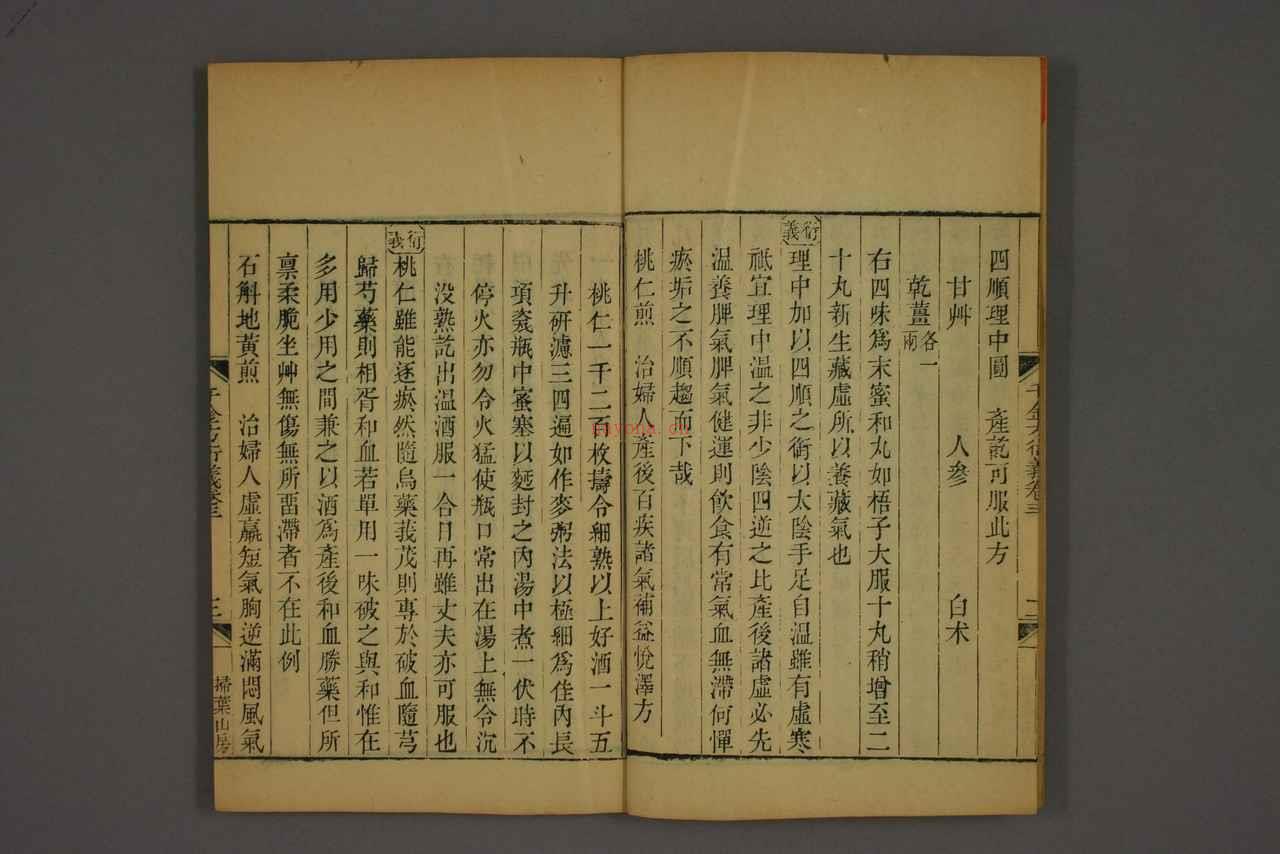 四順理中圓　產訖可服此方
甘艸　人參　白术
乾薑各一兩
右四味爲末蜜和丸如梧子大服十丸稍增至二
十丸新生藏虛所以養藏氣也
衍義
理中加以四順之衛以太陰手足自溫雖有虛寒
祇宜理中溫之非少陰四逆之比產後諸虛必先
溫養脾氣脾氣健運則飲食有常氣血無滯何憚
瘀垢之不順趨而下哉
桃仁煎　治婦人產後百疾諸氣補益悅澤方
桃仁一千二百枚擣令細熟以上好酒一斗五
升研濾三四遍如作麥粥法以極細爲佳內長
項瓷瓶中蜜塞以麪封之內湯中煮一伏時不
停火亦勿令火猛使瓶口常出在湯上無令沉
没熟訖出溫酒服一合日再雖丈夫亦可服也
衍義
桃仁雖能逐瘀然隨烏藥莪茂則專於破血隨芎
歸芍藥則相胥和血若單用一味破之與和惟在
多用少用之間兼之以酒爲產後和血勝藥但所
禀柔脆坐艸無傷無所畱滯者不在此例
石斛地黃煎　治婦人虛羸短氣胸逆滿悶風氣
千金方衍義卷三
二
千金方衍義卷三
三
掃葉山房